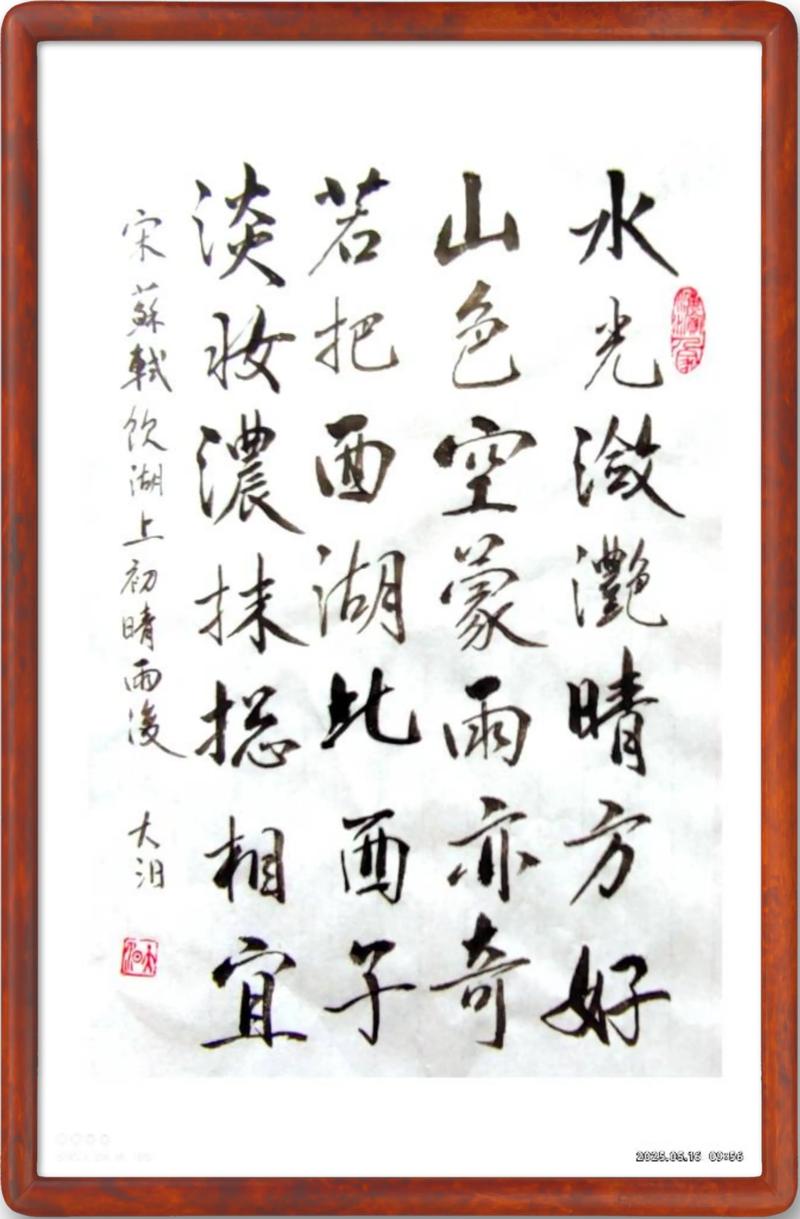 水光潋灧晴方好
山色空蒙雨亦奇
若把西湖比西子
淡妆濃抹捴相宜
宋蘇軾飲湖上初晴雨後 大汨
2025.05.16 09:56